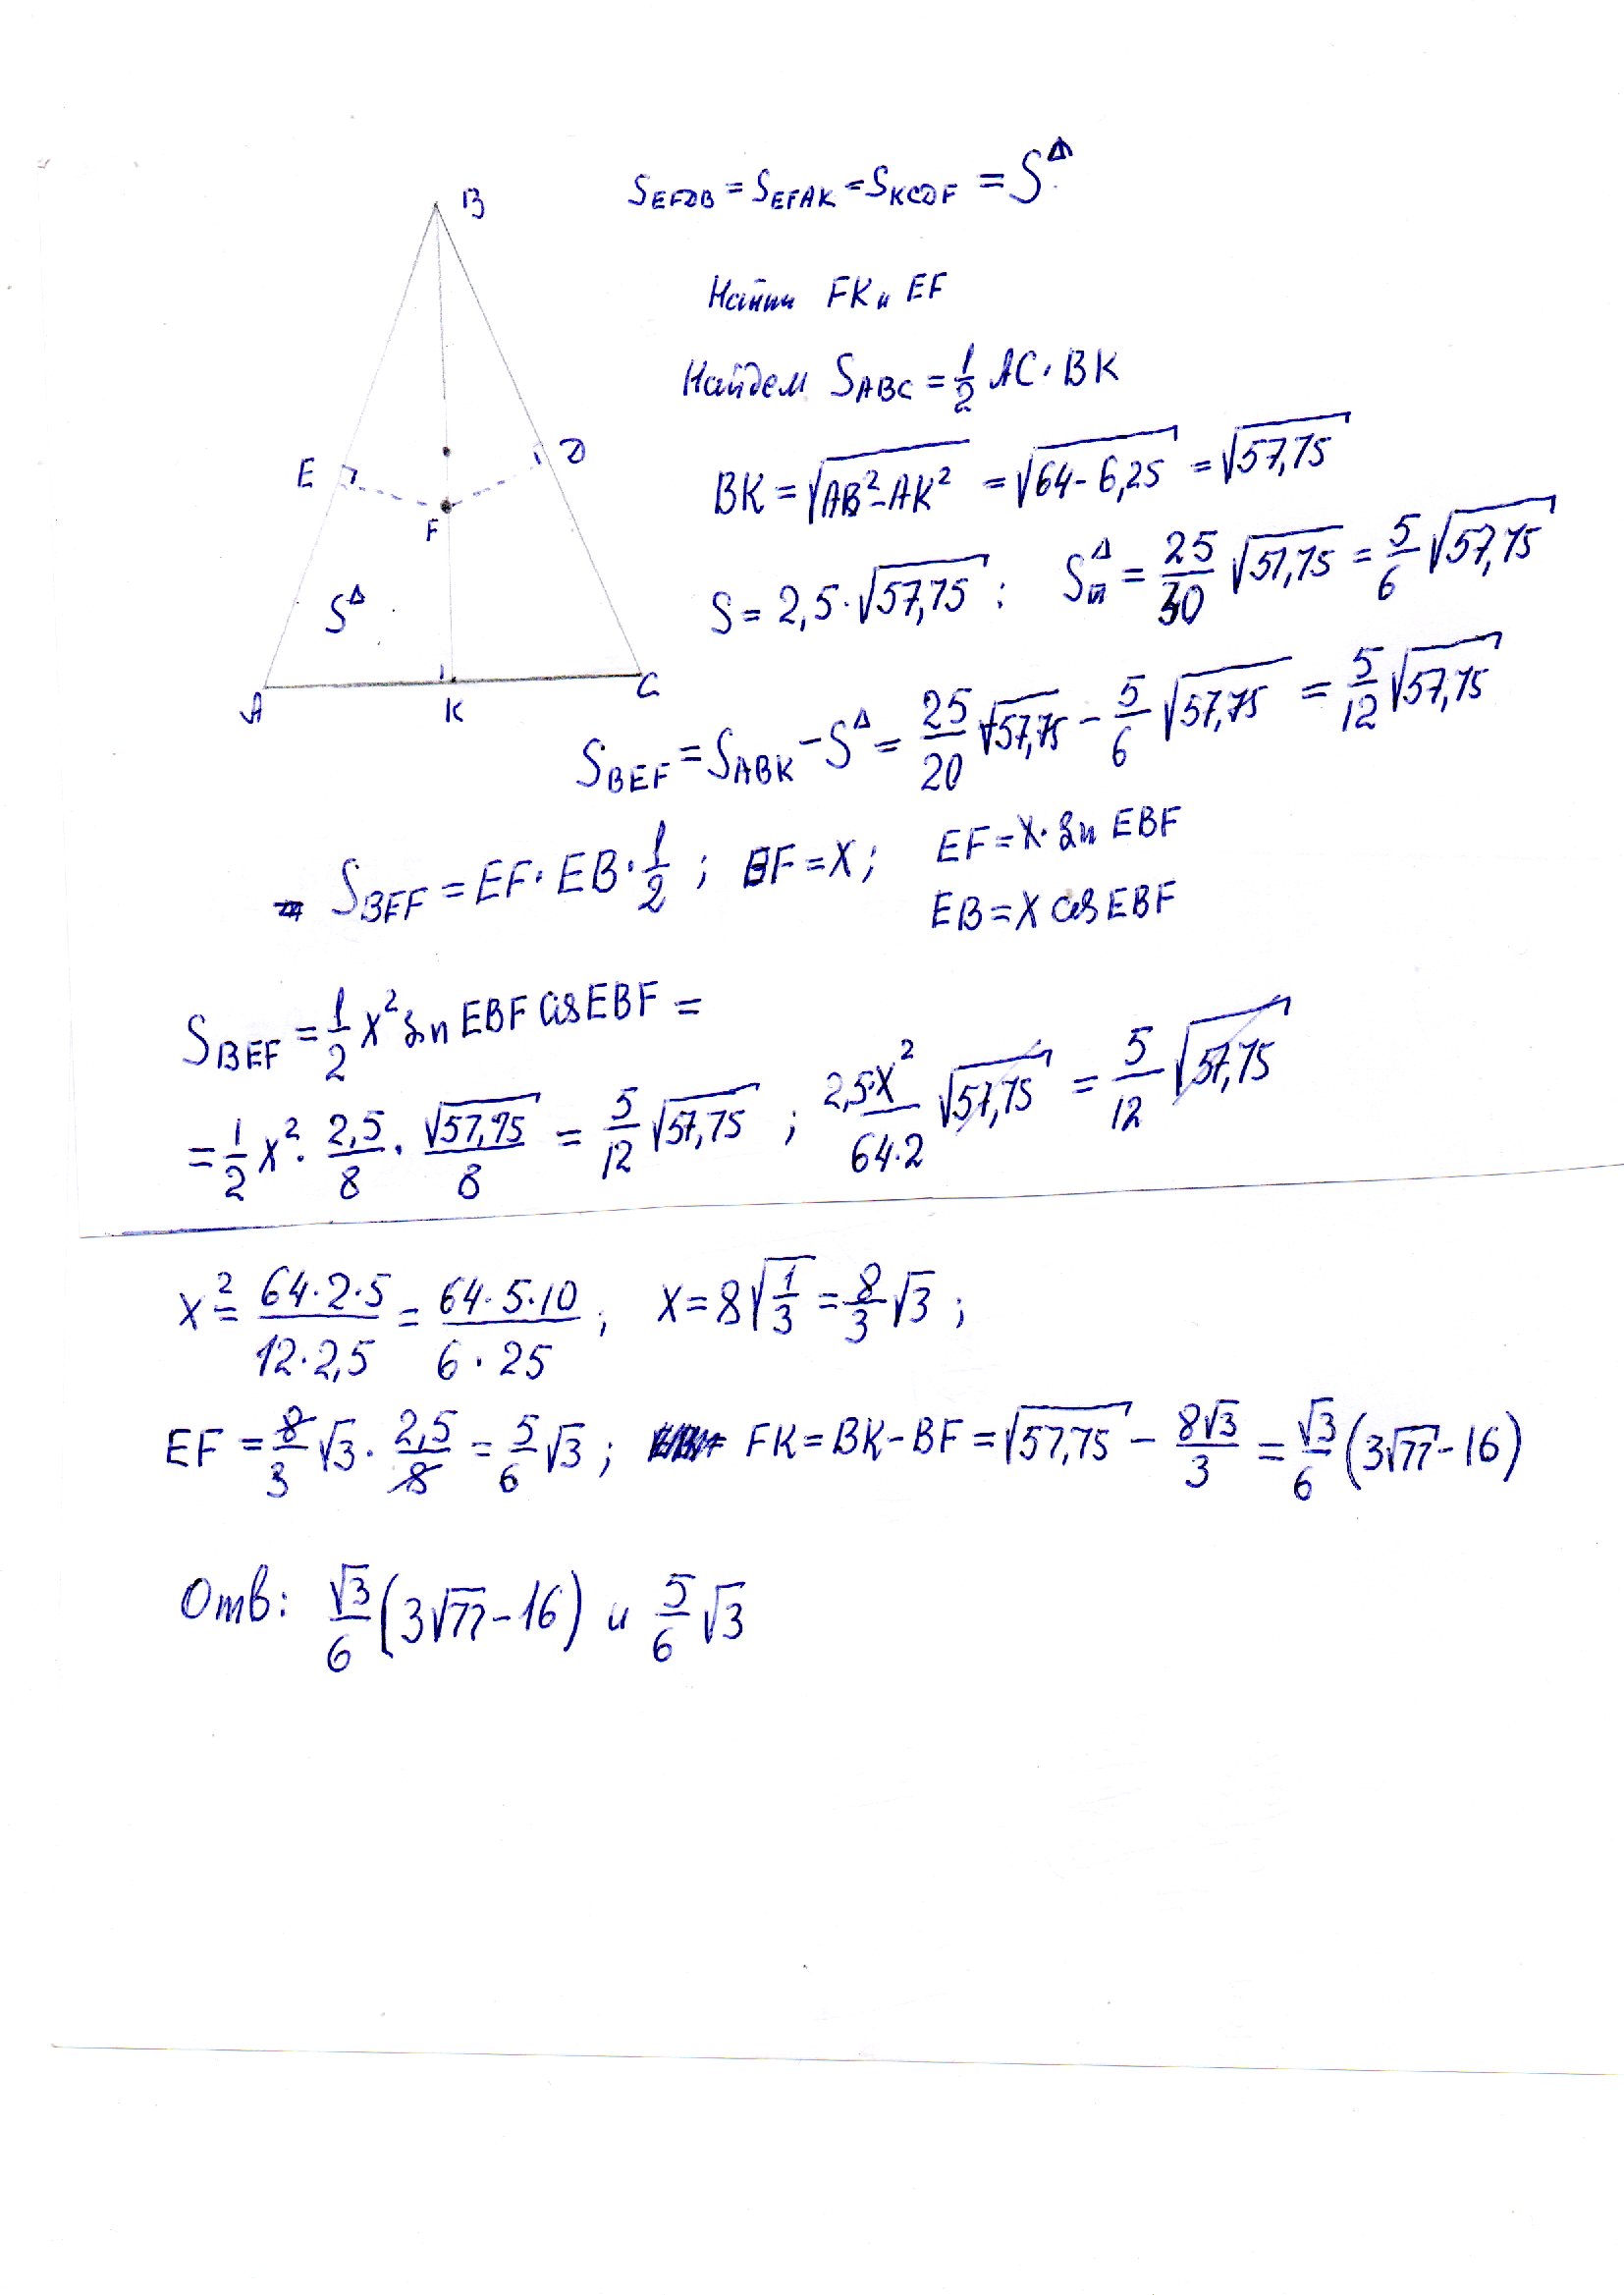 S_EFDB = S_EFAK = S_KCDF = S^Δ
B
Найти FK и EF
Найдем S_ABC = 1/2 AC · BK
E
D
F
BK = √(AB² - AK²) = √(64 - 6,25) = √57,75
S^Δ
S = 2,5 · √57,75 ; S^Δ = 25/30 √57,75 = 5/6 √57,75
A
K
C
S_BEF = S_ABK - S^Δ = 25/20 √57,75 - 5/6 √57,75 = 5/12 √57,75
S_BEF = EF · EB · 1/2 ; BF = X ; EF = X · sin EBF
EB = X cos EBF
S_BEF = 1/2 X² sin EBF cos EBF =
= 1/2 X² · 2,5/8 · √57,75/8 = 5/12 √57,75 ; 2,5·X²/64·2 √57,75 = 5/12 √57,75
X² = 64·2·5/12·2,5 = 64·5·10/6·25 ; X = 8√(1/3) = 8/3 √3 ;
EF = 8/3 √3 · 2,5/8 = 5/6 √3 ; FK = BK - BF = √57,75 - 8√3/3 = √3/6 (3√77 - 16)
Отв: √3/6 (3√77 - 16) и 5/6 √3